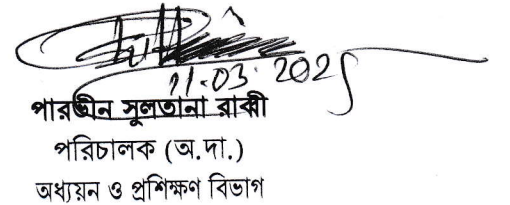 11.03.2025
পারভীন সুলতানা রাব্বী
পরিচালক (অ.দা.)
অধ্যয়ন ও প্রশিক্ষণ বিভাগ